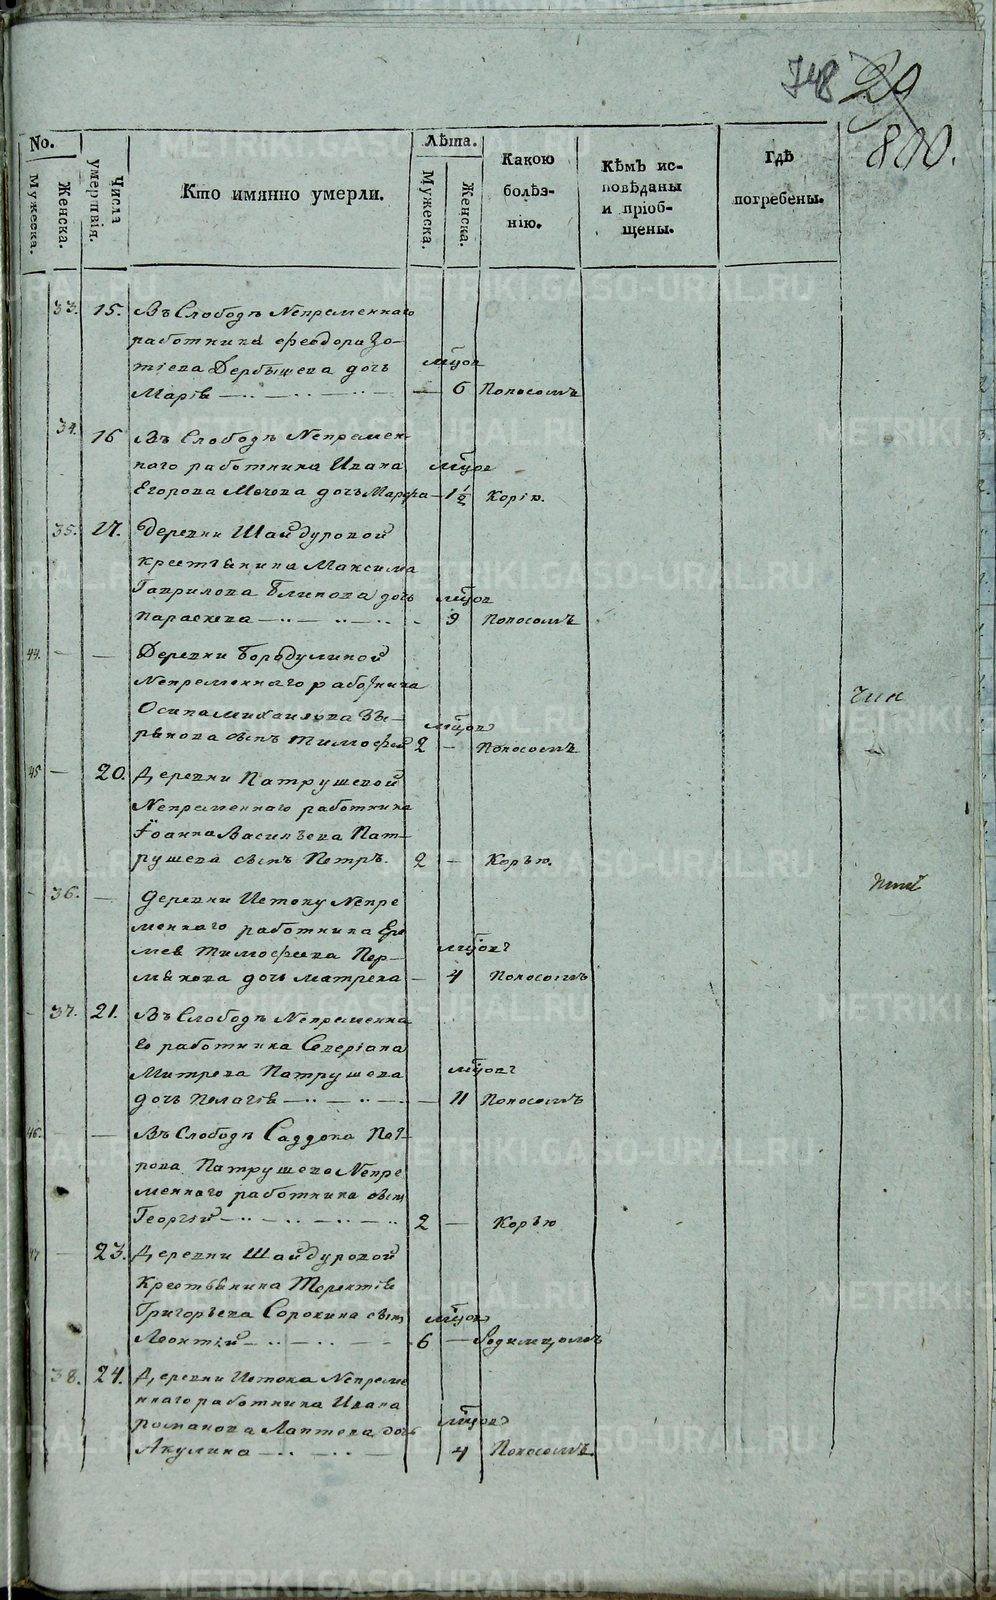 748 29
800.
No.
Мужеска.
Женска.
Числа умертвія.
Кто имянно умерли.
Лѣта.
Мужеска.
Женска.
Какою болѣз-
нію.
Кѣмъ ис-
повѣданы
и пріоб-
щены.
Гдѣ
погребены.
33. 15. Въ Слободѣ Непременнаго
работника Феодора Зо-
тіева Дербышева дочь мцов
Марія — 6 Поносомъ
34. 16 Въ Слободѣ Непремен-
наго работника Ивана мцов
Егорова Мочова дочь Марфа — 1½ Корію.
35. 17. Деревни Шайдуровой
крестьянина Максима
Гаврилова Блинова дочь мцов
Параскева — 9 Поносомъ
44. — — Деревни Бородулиной
Непременнаго работника
Осипа Михаилова Зы-
рянова сынъ Тимофей 2 — Поносомъ
мцов
Чин
45 — 20. Деревни Патрушевой
Непременнаго работника
Іоанна Васильева Пат-
рушева сынъ Петръ. 2 — Корью.
36. — Деревни Истоку Непре
меннаго работника Ере
мея Тимофеева Пер- мцовъ
мякова дочь Матрена — 4 Поносомъ
37. 21. Въ Слободѣ Непременна
го работника Северіана
Митрева Патрушева мцовъ
дочь Пелагія — 11 Поносомъ
46. — — Въ Слободѣ Саддока Пет-
рова Патрушева Непре
меннаго работника сынъ
Георгій — 2 — Корью
47 — 23. Деревни Шайдуровой
Крестьянина Терентія
Григорьева Сорокина сынъ мцов
Леонтій — 6 — Родимцомъ
38. 24. Деревни Истока Непреме
ннаго работника Ивана
Романова Лаптева дочь мцовъ
Акулина — 4 Поносомъ.
METRIKI.GASO-URAL.RU